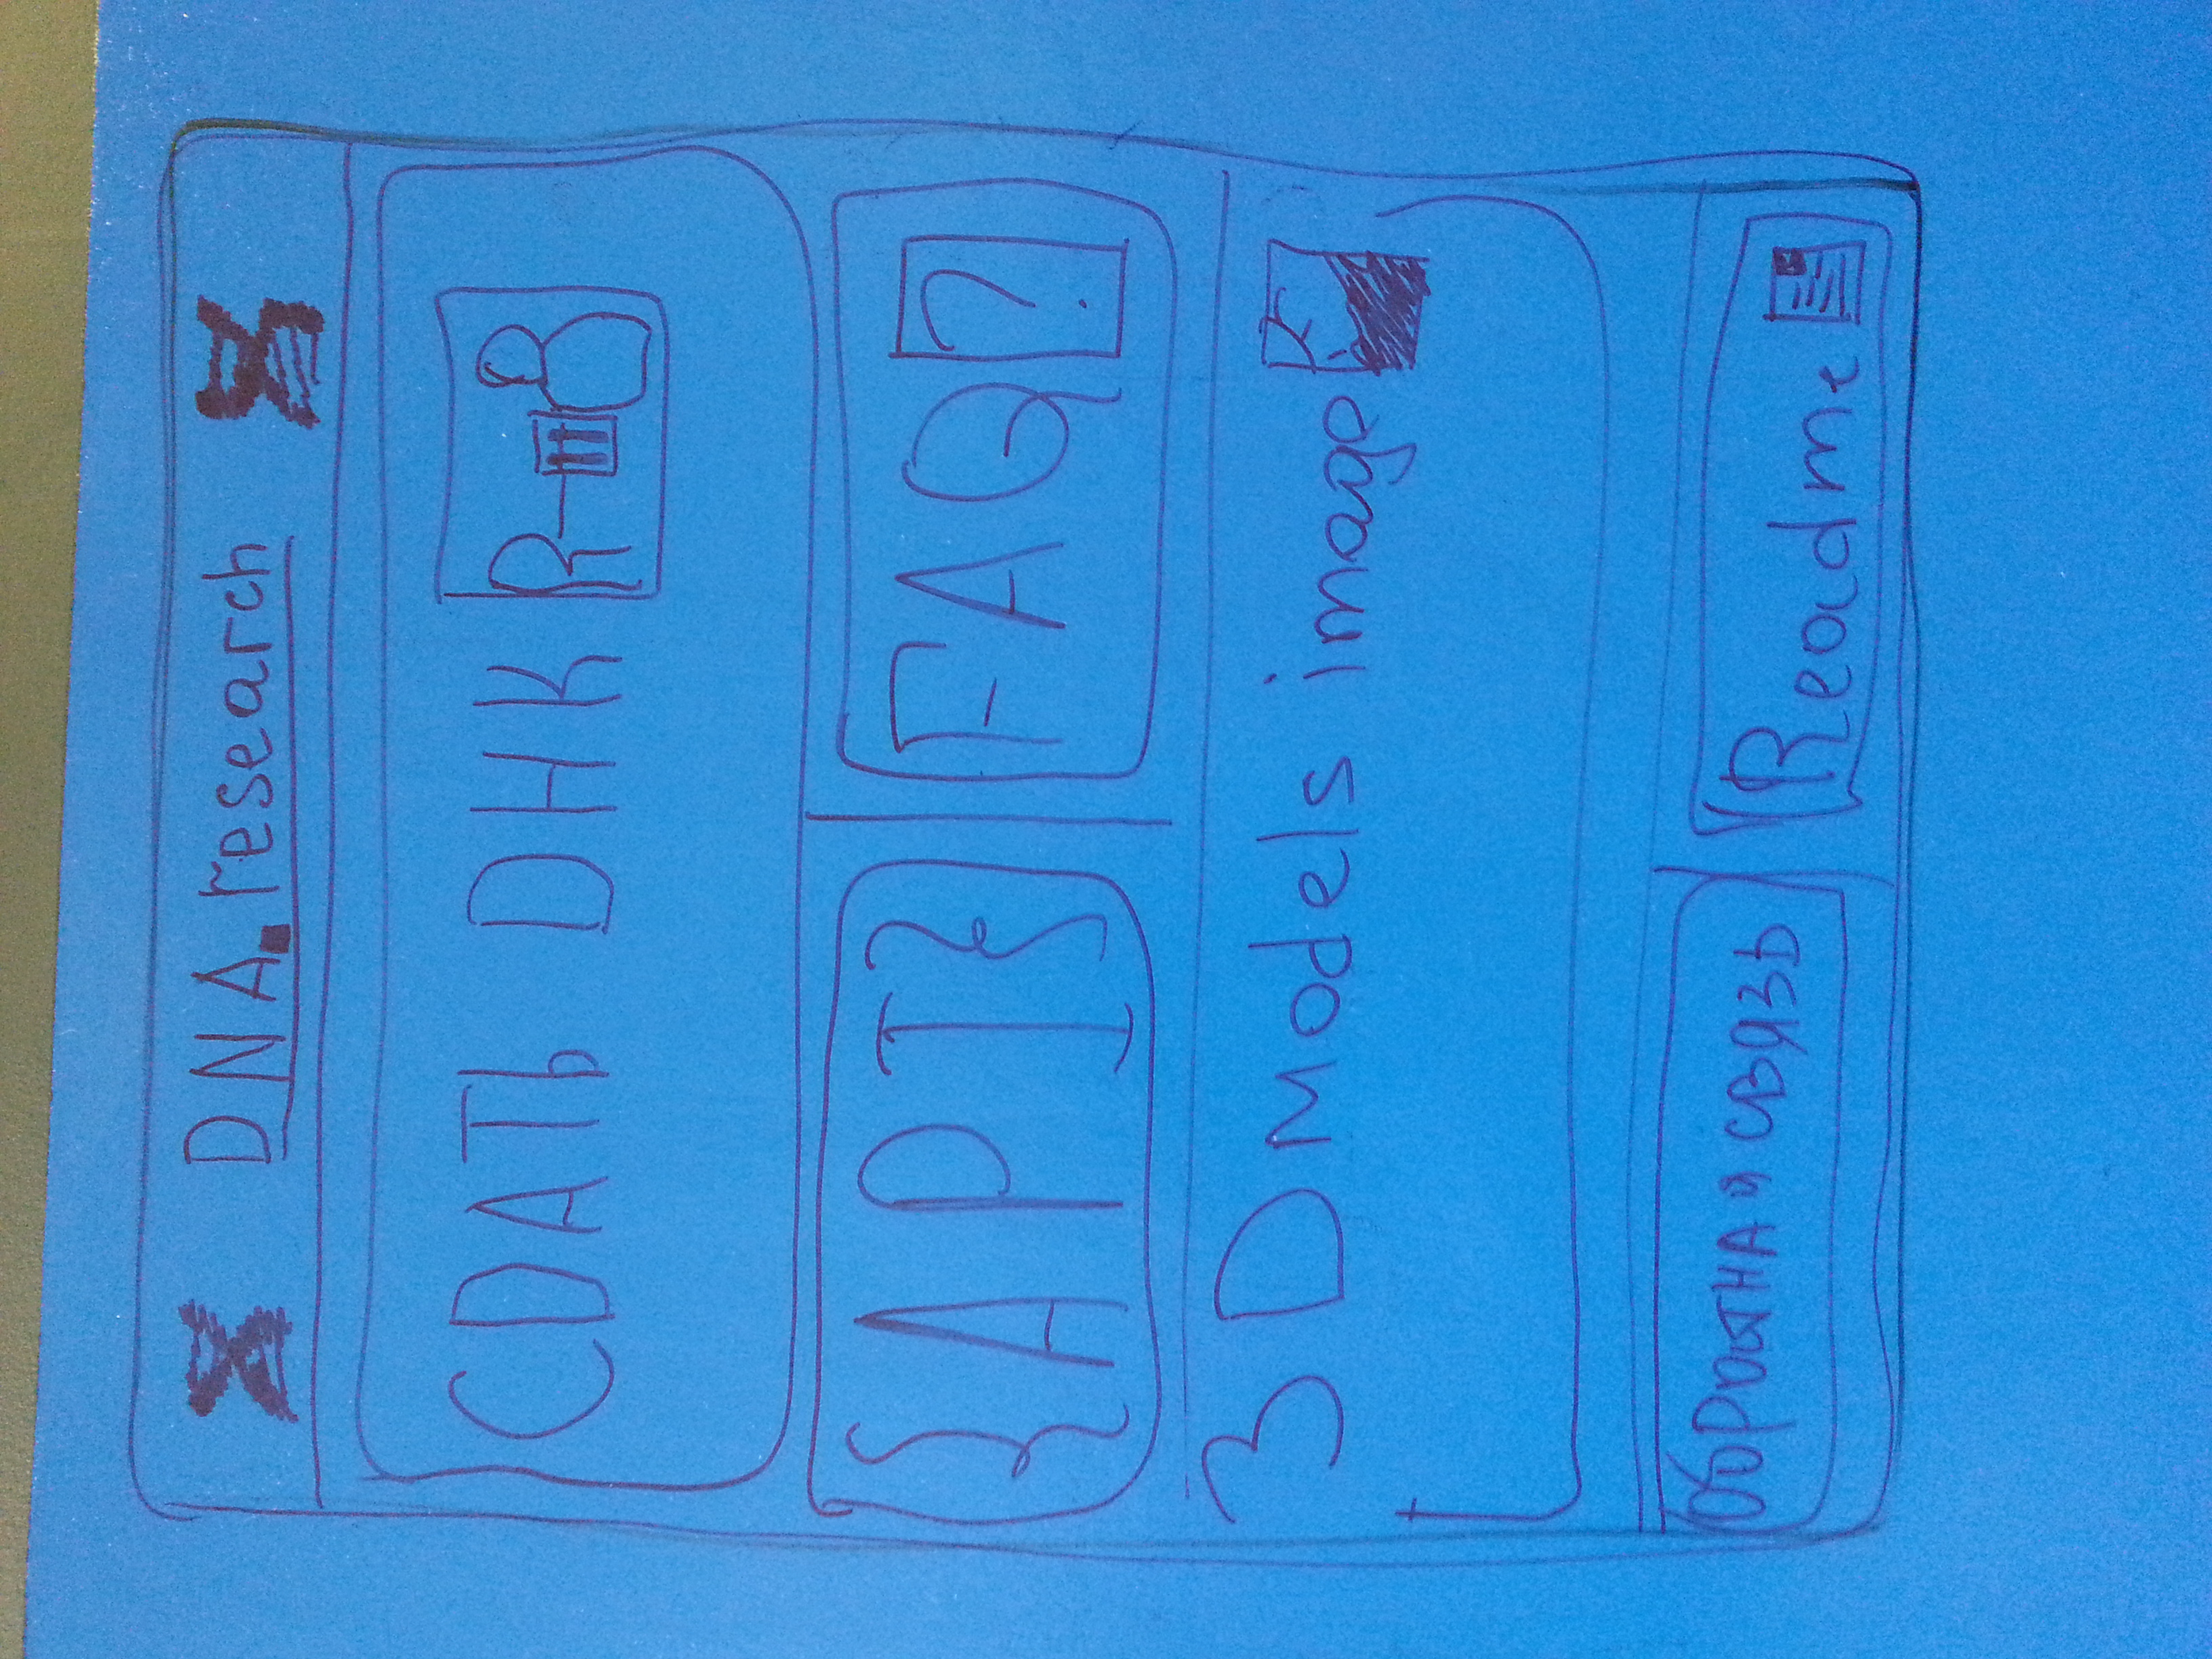 DNA.research
СДАТЬ ДНК
{API}
FAQ?
3D Models image
Обратная связь
Readme